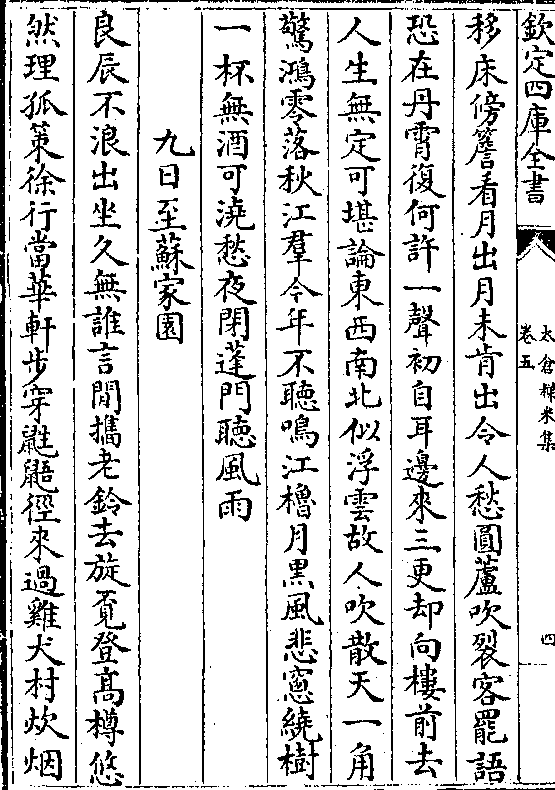 欽定四庫全書
太倉稊米集
卷五
四
移床傍簷看月出月未肯出令人愁圓蘆吹裂客罷語
恐在丹霄復何許一聲初自耳邊來三更却向樓前去
人生無定可堪論東西南北似浮雲故人吹散天一角
驚鴻零落秋江羣今年不聽鳴江櫓月黑風悲窓繞樹
一杯無酒可澆愁夜閉蓬門聽風雨
九日至蘇家園
良辰不浪出坐久無誰言閒攜老鈴去旋覔登高樽悠
然理孤䇿徐行當華軒步穿鼪鼯徑來過雞犬村炊烟